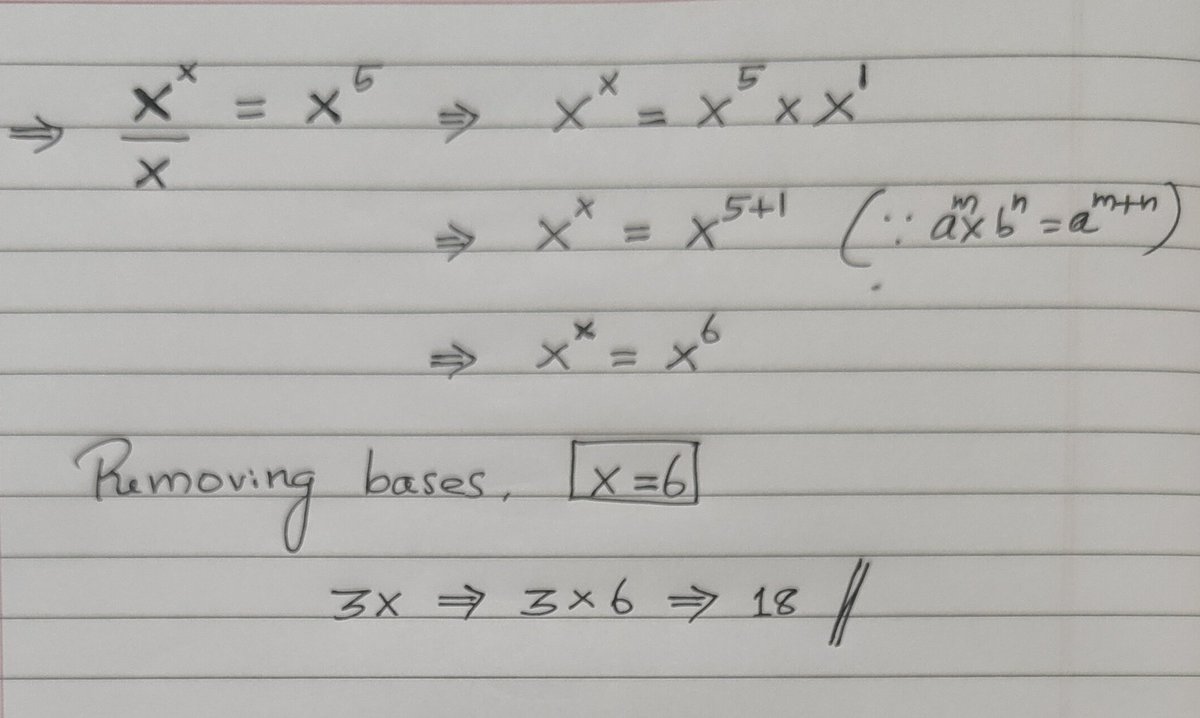 ⇒ x^x / x = x^5 ⇒ x^x = x^5 × x^1
⇒ x^x = x^(5+1) (∵ a^m × b^n = a^(m+n))
⇒ x^x = x^6
Removing bases, x = 6
3x ⇒ 3 × 6 ⇒ 18 //